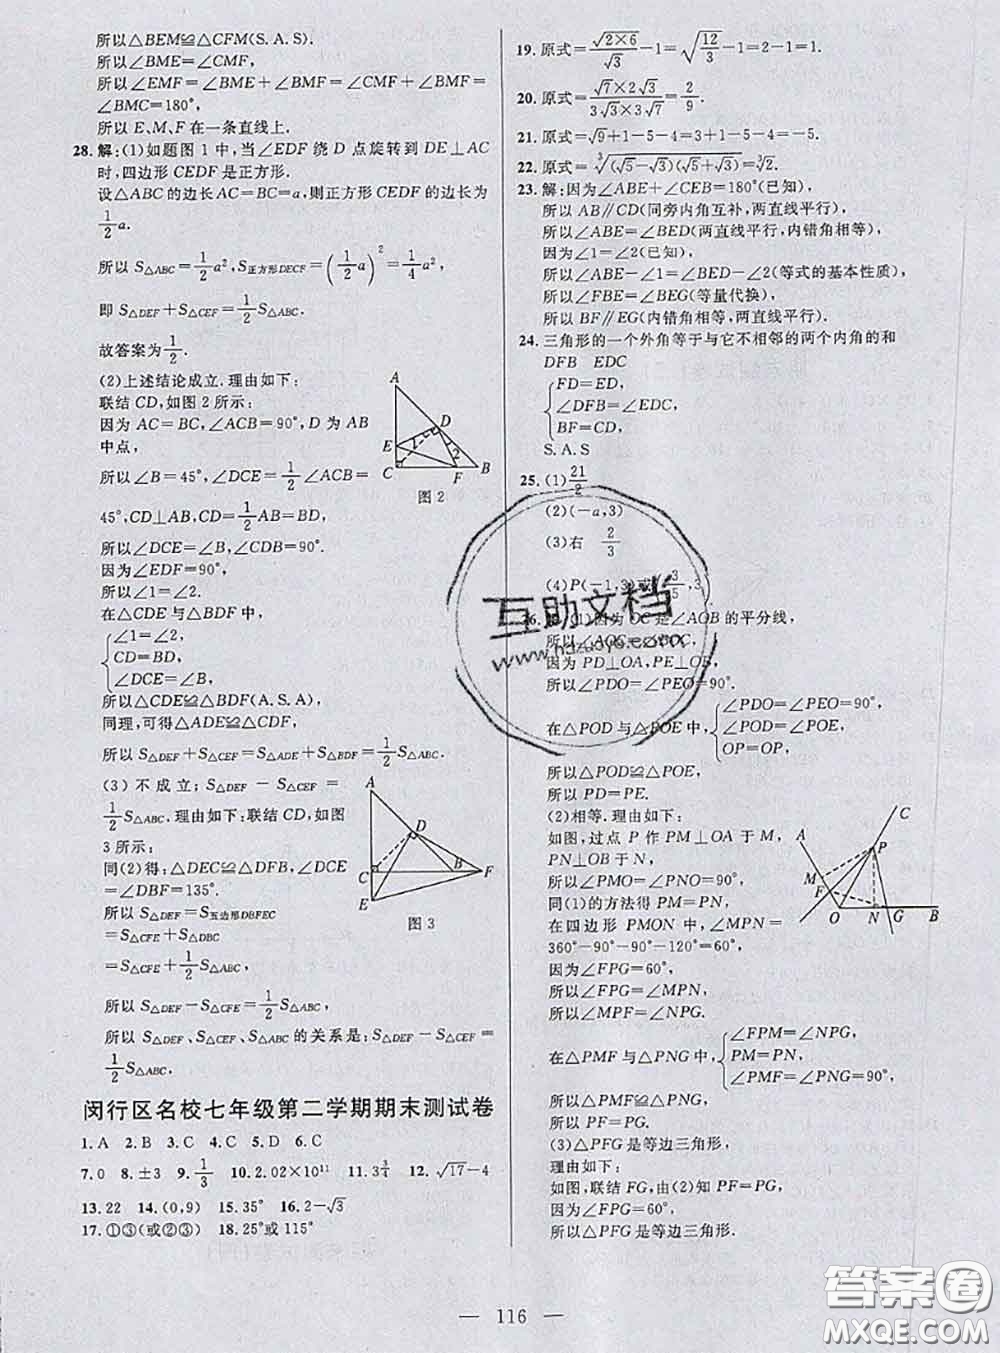 所以△BEM≌△CFM(S.A.S).
所以∠BME=∠CMF,
所以∠EMF=∠BME+∠BMF=∠CMF+∠BMF=
∠BMC=180°,
所以 E、M、F 在一条直线上.
28.解:(1)如题图 1 中,当∠EDF 绕 D 点旋转到 DE⊥AC
时,四边形 CEDF 是正方形.
设△ABC 的边长 AC=BC=a,则正方形 CEDF 的边长为
1/2 a.
所以 S△ABC=1/2 a²,S正方形DECF=(1/2 a)²=1/4 a²,
即 S△DEF+S△CEF=1/2 S△ABC.
故答案为 1/2.
(2)上述结论成立.理由如下:
联结 CD,如图 2 所示:
因为 AC=BC,∠ACB=90°,D 为 AB
中点,
所以∠B=45°,∠DCE=1/2∠ACB=
45°,CD⊥AB,CD=1/2 AB=BD,
所以∠DCE=∠B,∠CDB=90°.
因为∠EDF=90°,
所以∠1=∠2.
在△CDE 与△BDF 中,
∠1=∠2,
CD=BD,
∠DCE=∠B,
所以△CDE≌△BDF(A.S.A).
同理,可得△ADE≌△CDF,
所以 S△DEF+S△CEF=S△ADE+S△BDF=1/2 S△ABC.
A
D
E
1
2
C
F
B
图 2
(3) 不成立; S△DEF − S△CEF =
1/2 S△ABC.理由如下:联结 CD,如图
3 所示:
同(2)得:△DEC≌△DFB,∠DCE
=∠DBF=135°.
所以 S△DEF=S五边形DBFEC
=S△CFE+S△DBC
=S△CFE+1/2 S△ABC,
所以 S△DEF−S△CFE=1/2 S△ABC,
所以 S△DEF、S△CEF、S△ABC 的关系是:S△DEF−S△CEF=
1/2 S△ABC.
A
D
C
B
F
E
图 3
闵行区名校七年级第二学期期末测试卷
1.A 2.B 3.C 4.C 5.D 6.C
7.0 8.±3 9.1/3 10.2.02×10¹¹ 11.3^(3/4) 12.√17−4
13.22 14.(0,9) 15.35° 16.2−√3
17.①③(或②③) 18.25°或 115°
19.原式=√(2×6)/√3−1=√(12/3)−1=2−1=1.
20.原式=(√7×2√3)/(3√3×3√7)=2/9.
21.原式=√9+1−5−4=3+1−5−4=−5.
22.原式=³√((√5−√3)(√5+√3))=³√2.
23.解:因为∠ABE+∠CEB=180°(已知),
所以 AB∥CD(同旁内角互补,两直线平行),
所以∠ABE=∠BED(两直线平行,内错角相等),
因为∠1=∠2(已知),
所以∠ABE−∠1=∠BED−∠2(等式的基本性质),
所以∠FBE=∠BEG(等量代换),
所以 BF∥EG(内错角相等,两直线平行).
24.三角形的一个外角等于与它不相邻的两个内角的和
DFB EDC
FD=ED,
∠DFB=∠EDC,
BF=CD,
S.A.S
25.(1)21/2
(2)(−a,3)
(3)右 2/3
(4)P(−1,3)或
(1)因为 OC 是∠AOB 的平分线,
所以∠AOC=∠BOC,
因为 PD⊥OA,PE⊥OB,
所以∠PDO=∠PEO=90°.
在△POD 与△POE 中,
∠PDO=∠PEO=90°,
∠POD=∠POE,
OP=OP,
所以△POD≌△POE,
所以 PD=PE.
(2)相等.理由如下:
如图,过点 P 作 PM⊥OA 于 M,
PN⊥OB 于 N,
所以∠PMO=∠PNO=90°,
同(1)的方法得 PM=PN,
在四边形 PMON 中,∠MPN=
360°−90°−90°−120°=60°,
因为∠FPG=60°,
所以∠FPG=∠MPN,
所以∠MPF=∠NPG.
A
C
P
M
F
O
N
G
B
在△PMF 与△PNG 中,
∠FPM=∠NPG,
PM=PN,
∠PMF=∠PNG=90°,
所以△PMF≌△PNG,
所以 PF=PG.
(3)△PFG 是等边三角形,
理由如下:
如图,联结 FG,由(2)知 PF=PG,
因为∠FPG=60°,
所以△PFG 是等边三角形.
互助文档
— 116 —
答案圈
MXQE.COM